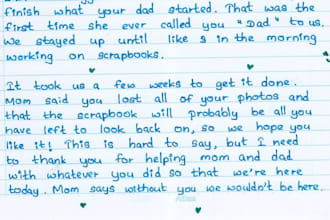 finish what your dad started. That was the
first time she ever called you "Dad" to us.
We stayed up until like 5 in the morning
working on scrapbooks.
It took us a few weeks to get it done.
Mom said you lost all of your photos and
that the scrapbook will probably be all you
have left to look back on, so we hope you
like it! This is hard to say, but I need
to thank you for helping mom and dad
with whatever you did so that we're here
today. Mom says without you we wouldn't be here.